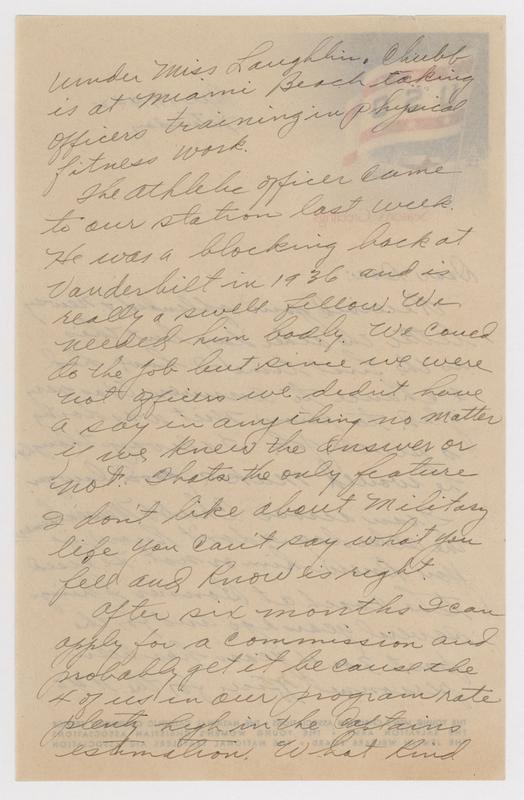 under Miss Laughlin. Chubb
is at Miami Beach taking
officers training in physical
fitness work.
The athletic officer came
to our station last week.
He was a blocking back at
Vanderbilt in 1936 and is
really a swell fellow. We
needed him badly. We could
do the job but since we were
not officers we didn't have
a say in anything no matter
if we knew the answer or
not. Thats the only feature
I don't like about Military
life you can't say what you
feel and know is right.
After six months I can
apply for a commission and
probably get it because the
4 of us in our program rate
plenty high in the Captains
estimation. What kind